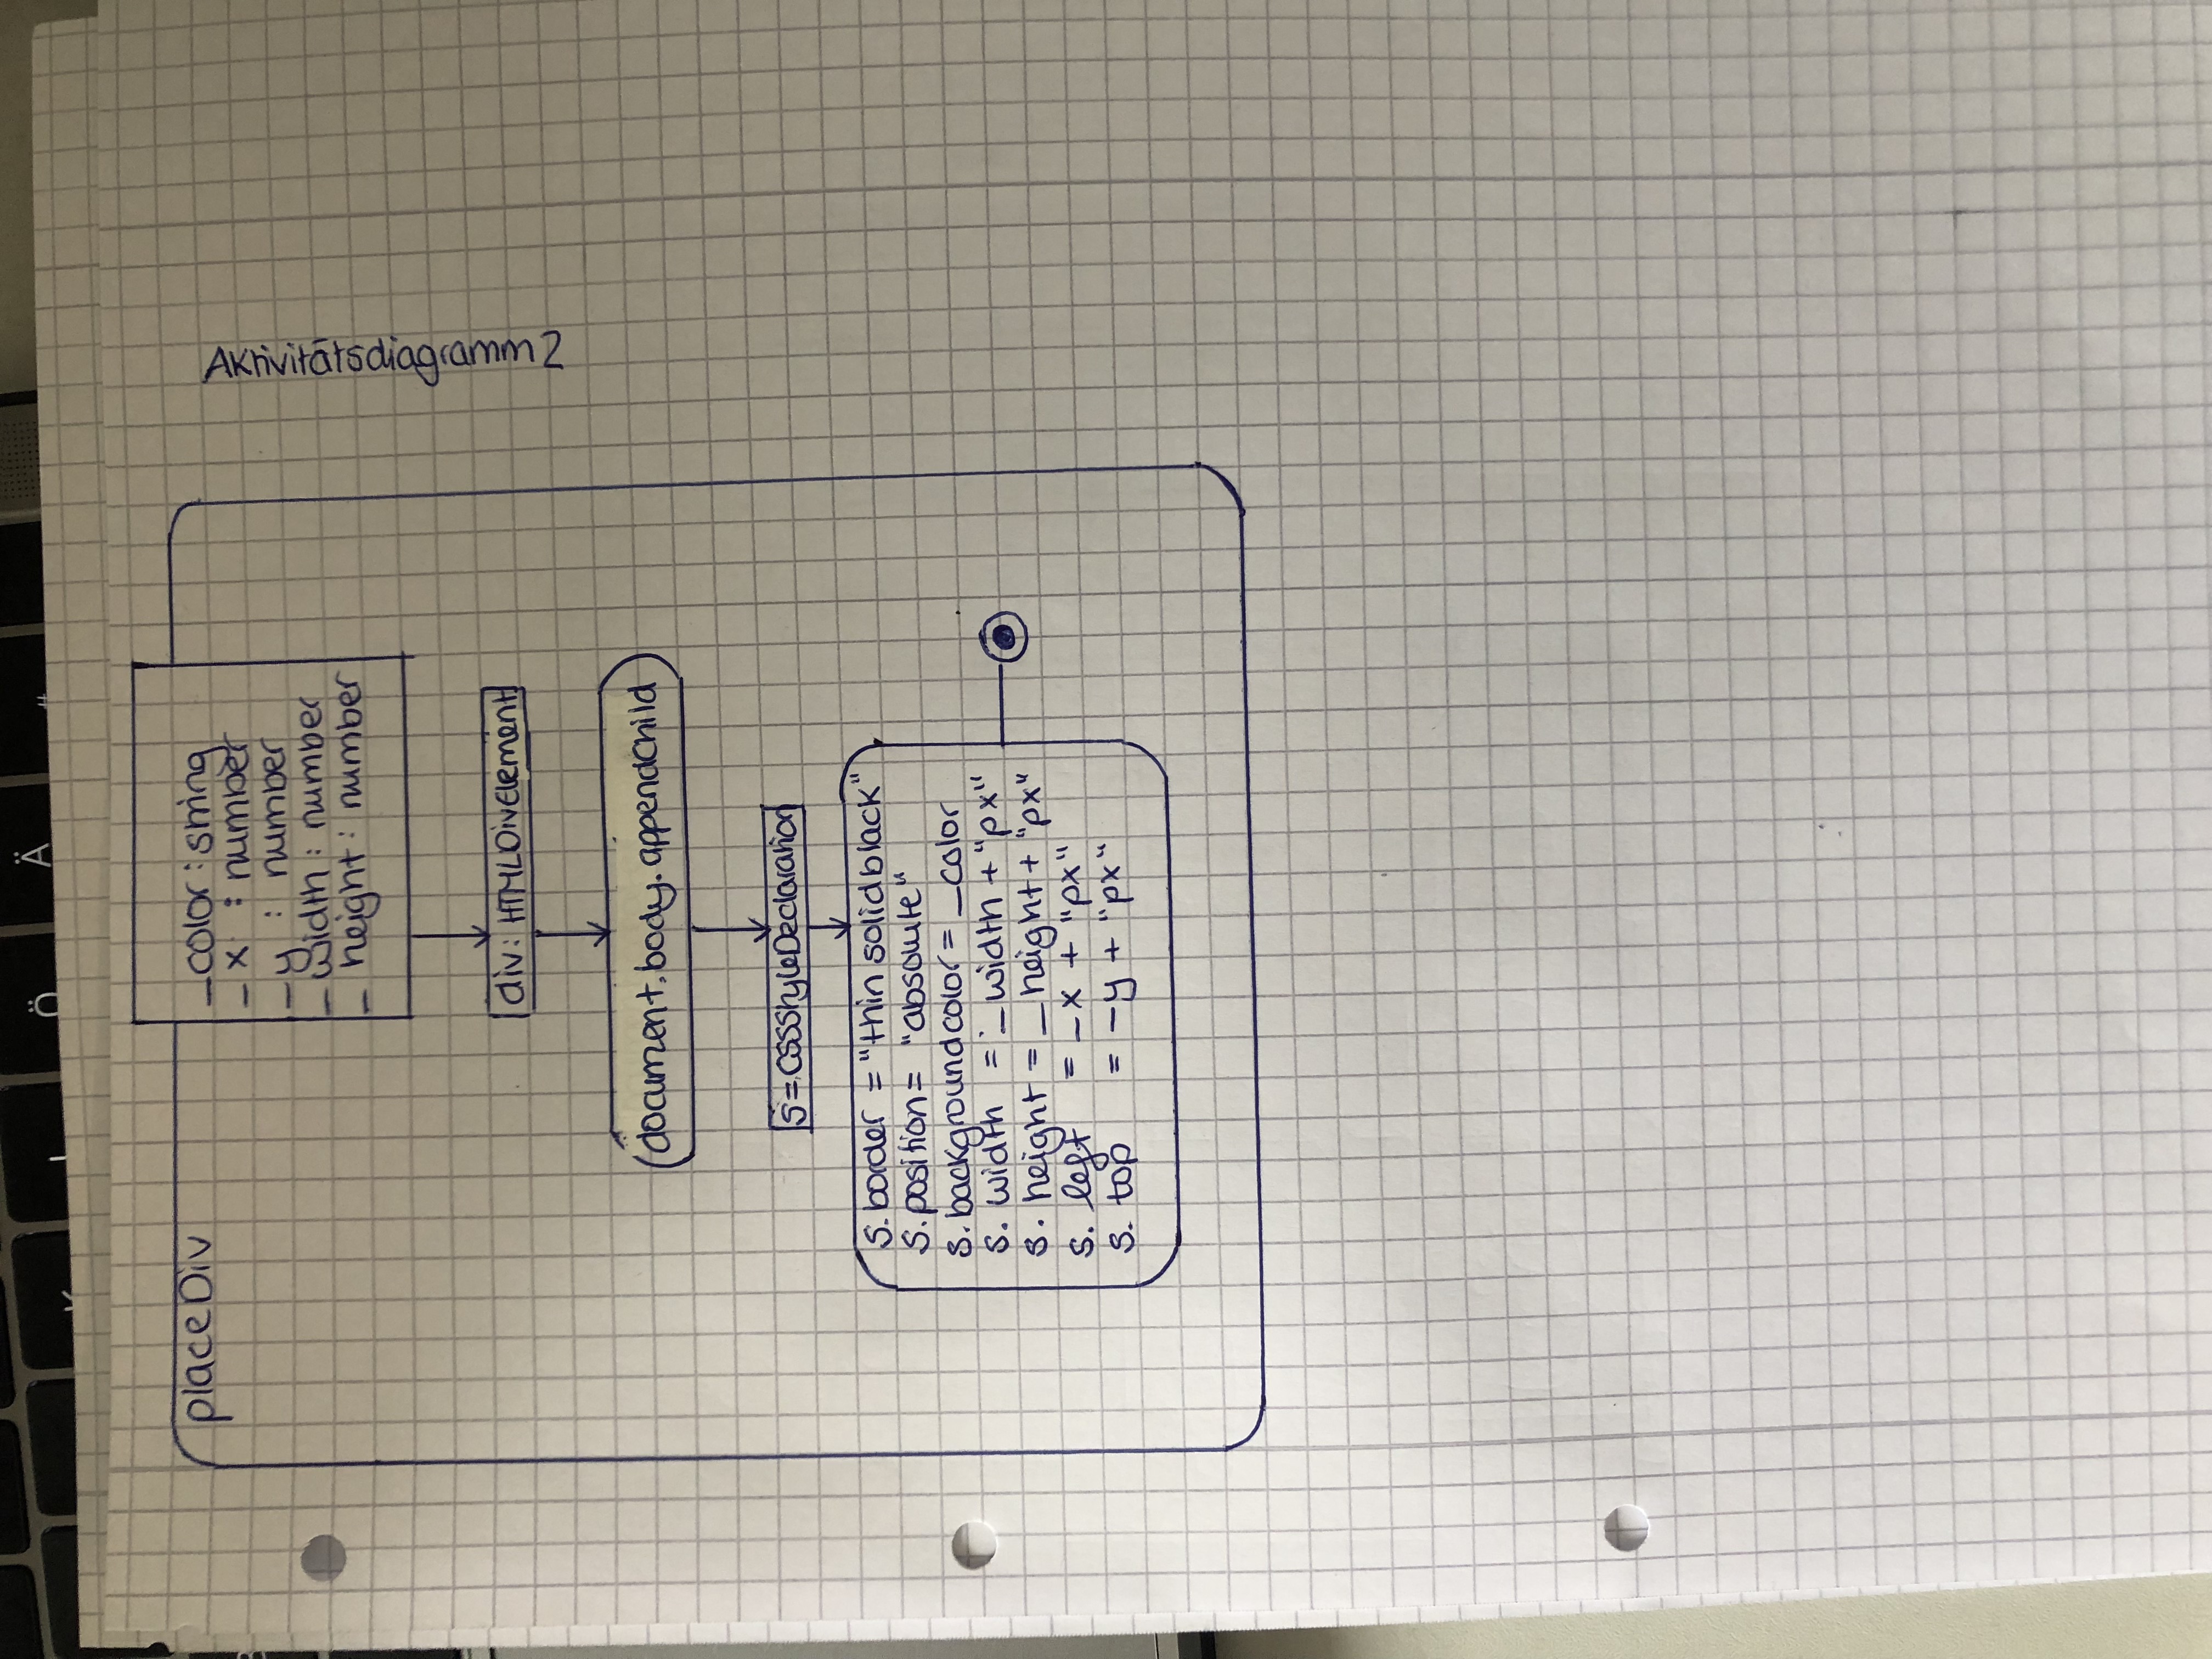 Ö Ä #
placeDiv
_color: string
_ x : number
_ y : number
_ width: number
_ height: number
div: HTMLDivElement
document.body.appendChild
s=CSSStyleDeclaration
s.border = "thin solid black"
s.position = "absolute"
s.backgroundcolor = _color
s. width = _width + "px"
s. height = _height + "px"
s. left = _x + "px"
s. top = _y + "px"
Aktivitätsdiagramm 2